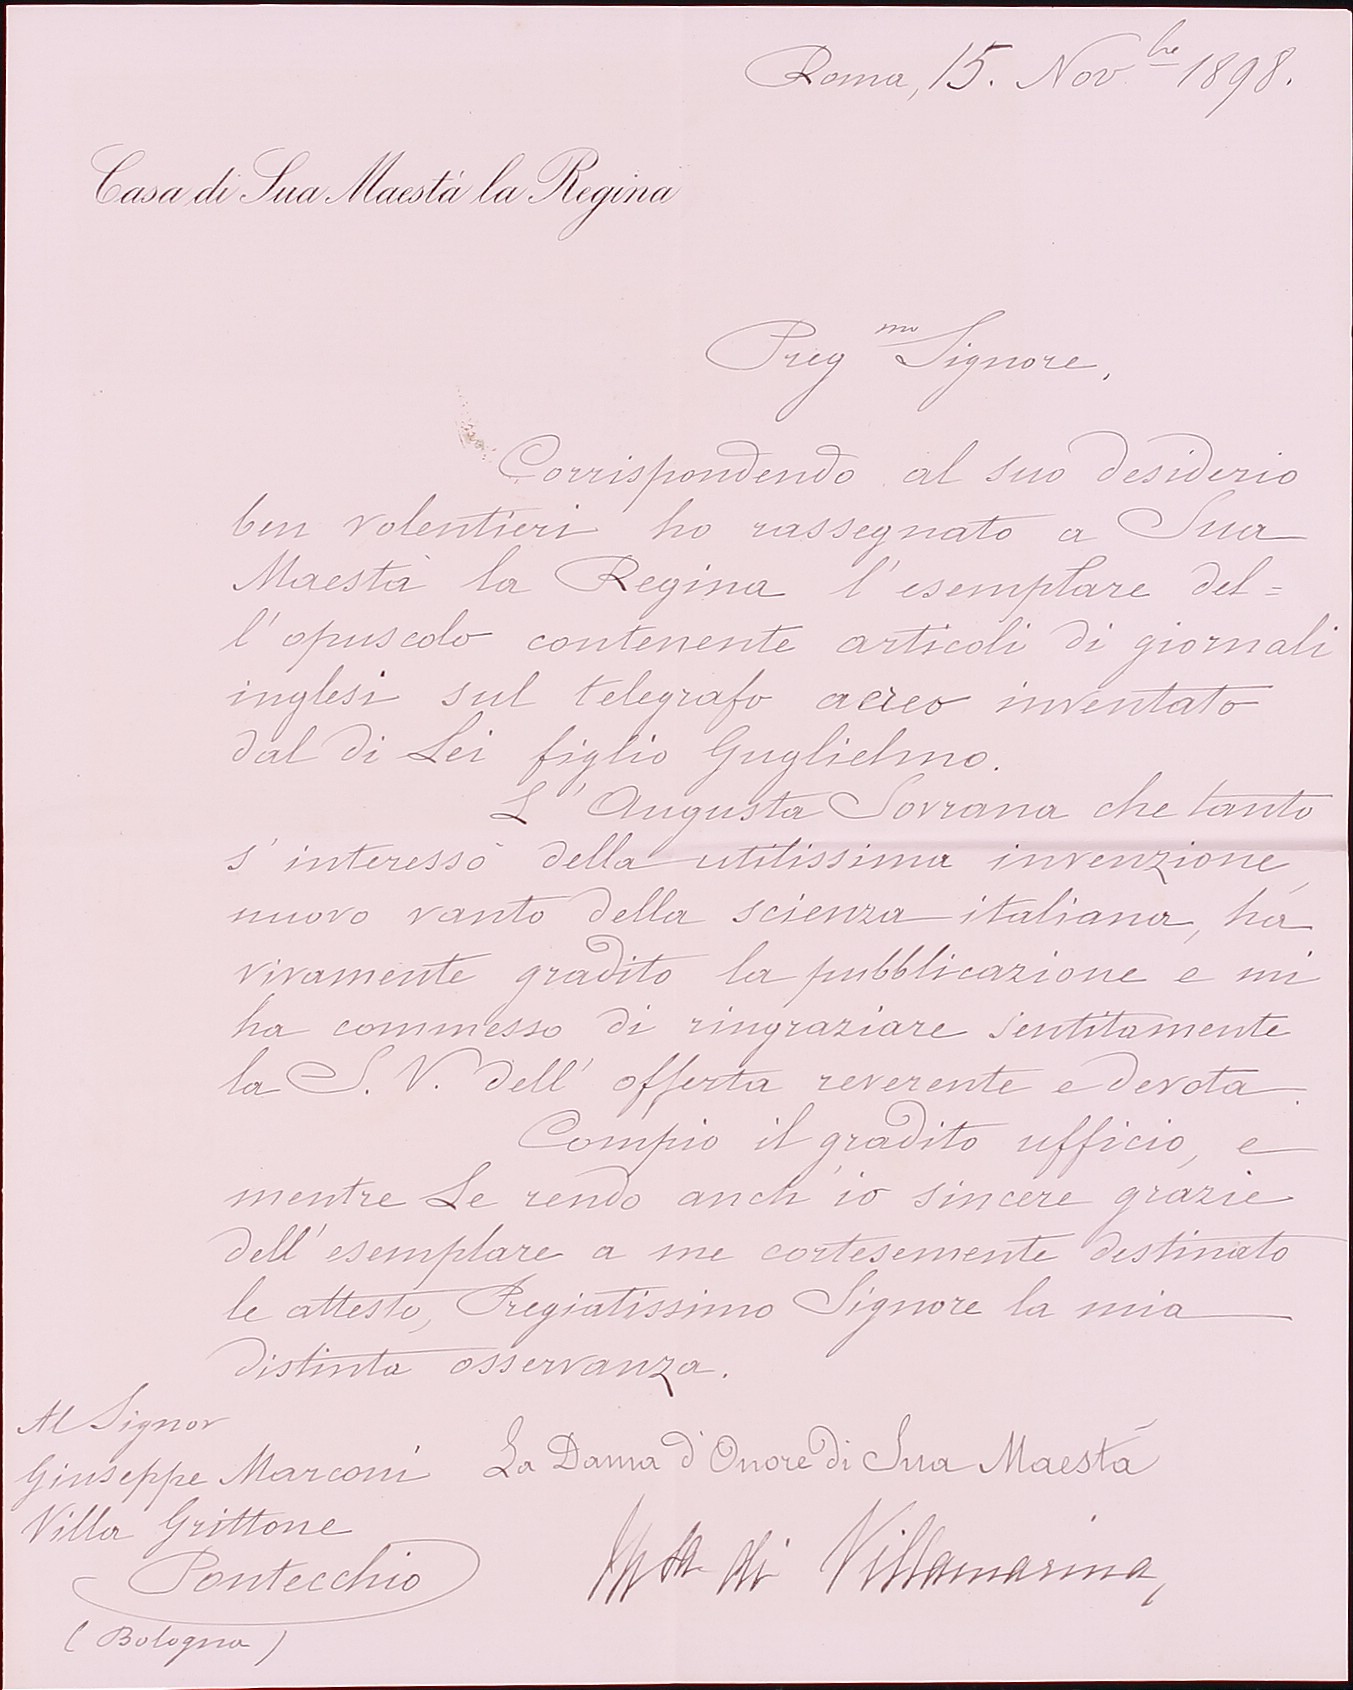 Roma, 15. Nov.bre 1898.
Casa di Sua Maestà la Regina
Preg mo Signore,
Corrispondendo al suo desiderio
ben volentieri ho rassegnato a Sua
Maestà la Regina l'esemplare del=
l'opuscolo contenente articoli di giornali
inglesi sul telegrafo aereo inventato
dal di Lei figlio Guglielmo.
L'Augusta Sovrana che tanto
s'interessò della utilissima invenzione,
nuovo vanto della scienza italiana, ha
vivamente gradito la pubblicazione e mi
ha commesso di ringraziare sentitamente
la S. V. dell'offerta reverente e devota.
Compio il gradito ufficio, e
mentre Le rendo anch'io sincere grazie
dell'esemplare a me cortesemente destinato
le attesto, Pregiatissimo Signore la mia
distinta osservanza.
Al Signor
Giuseppe Marconi
Villa Grittone
Pontecchio
(Bologna)
La Dama d'Onore di Sua Maestà
di Villamarina,